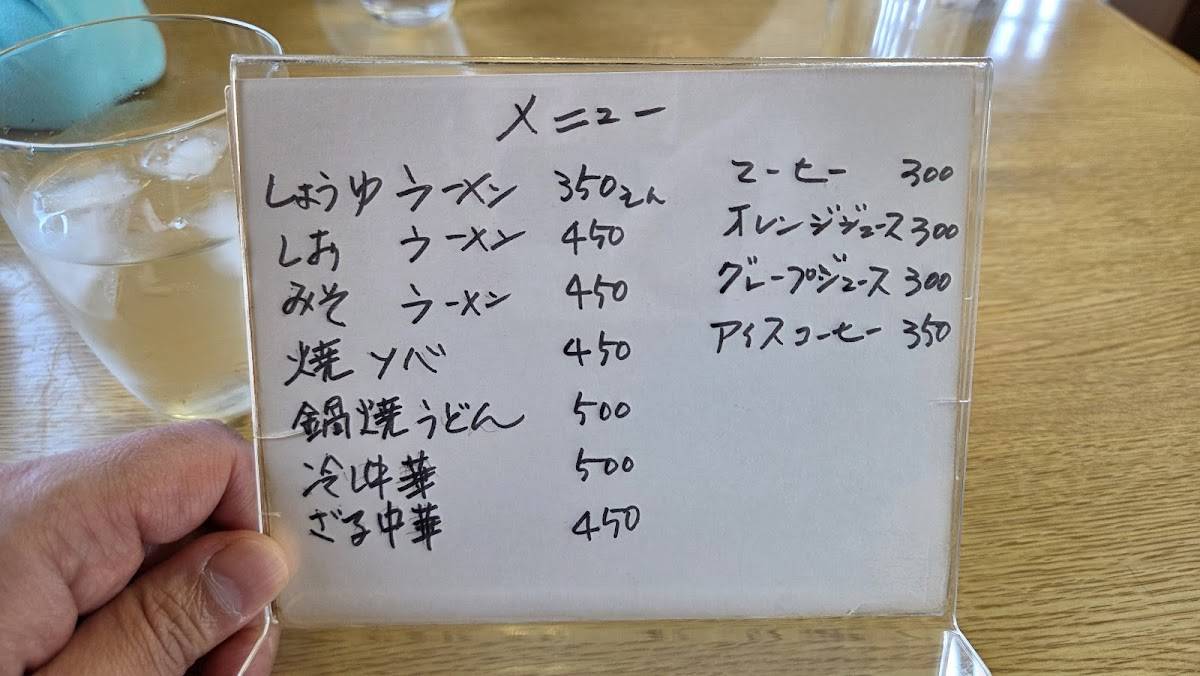 メニュー
しょうゆ ラーメン 350えん
しお ラーメン 450
みそ ラーメン 450
焼ソバ 450
鍋焼うどん 500
冷し中華 500
ざる中華 450
コーヒー 300
オレンジジュース 300
グレープジュース 300
アイスコーヒー 350